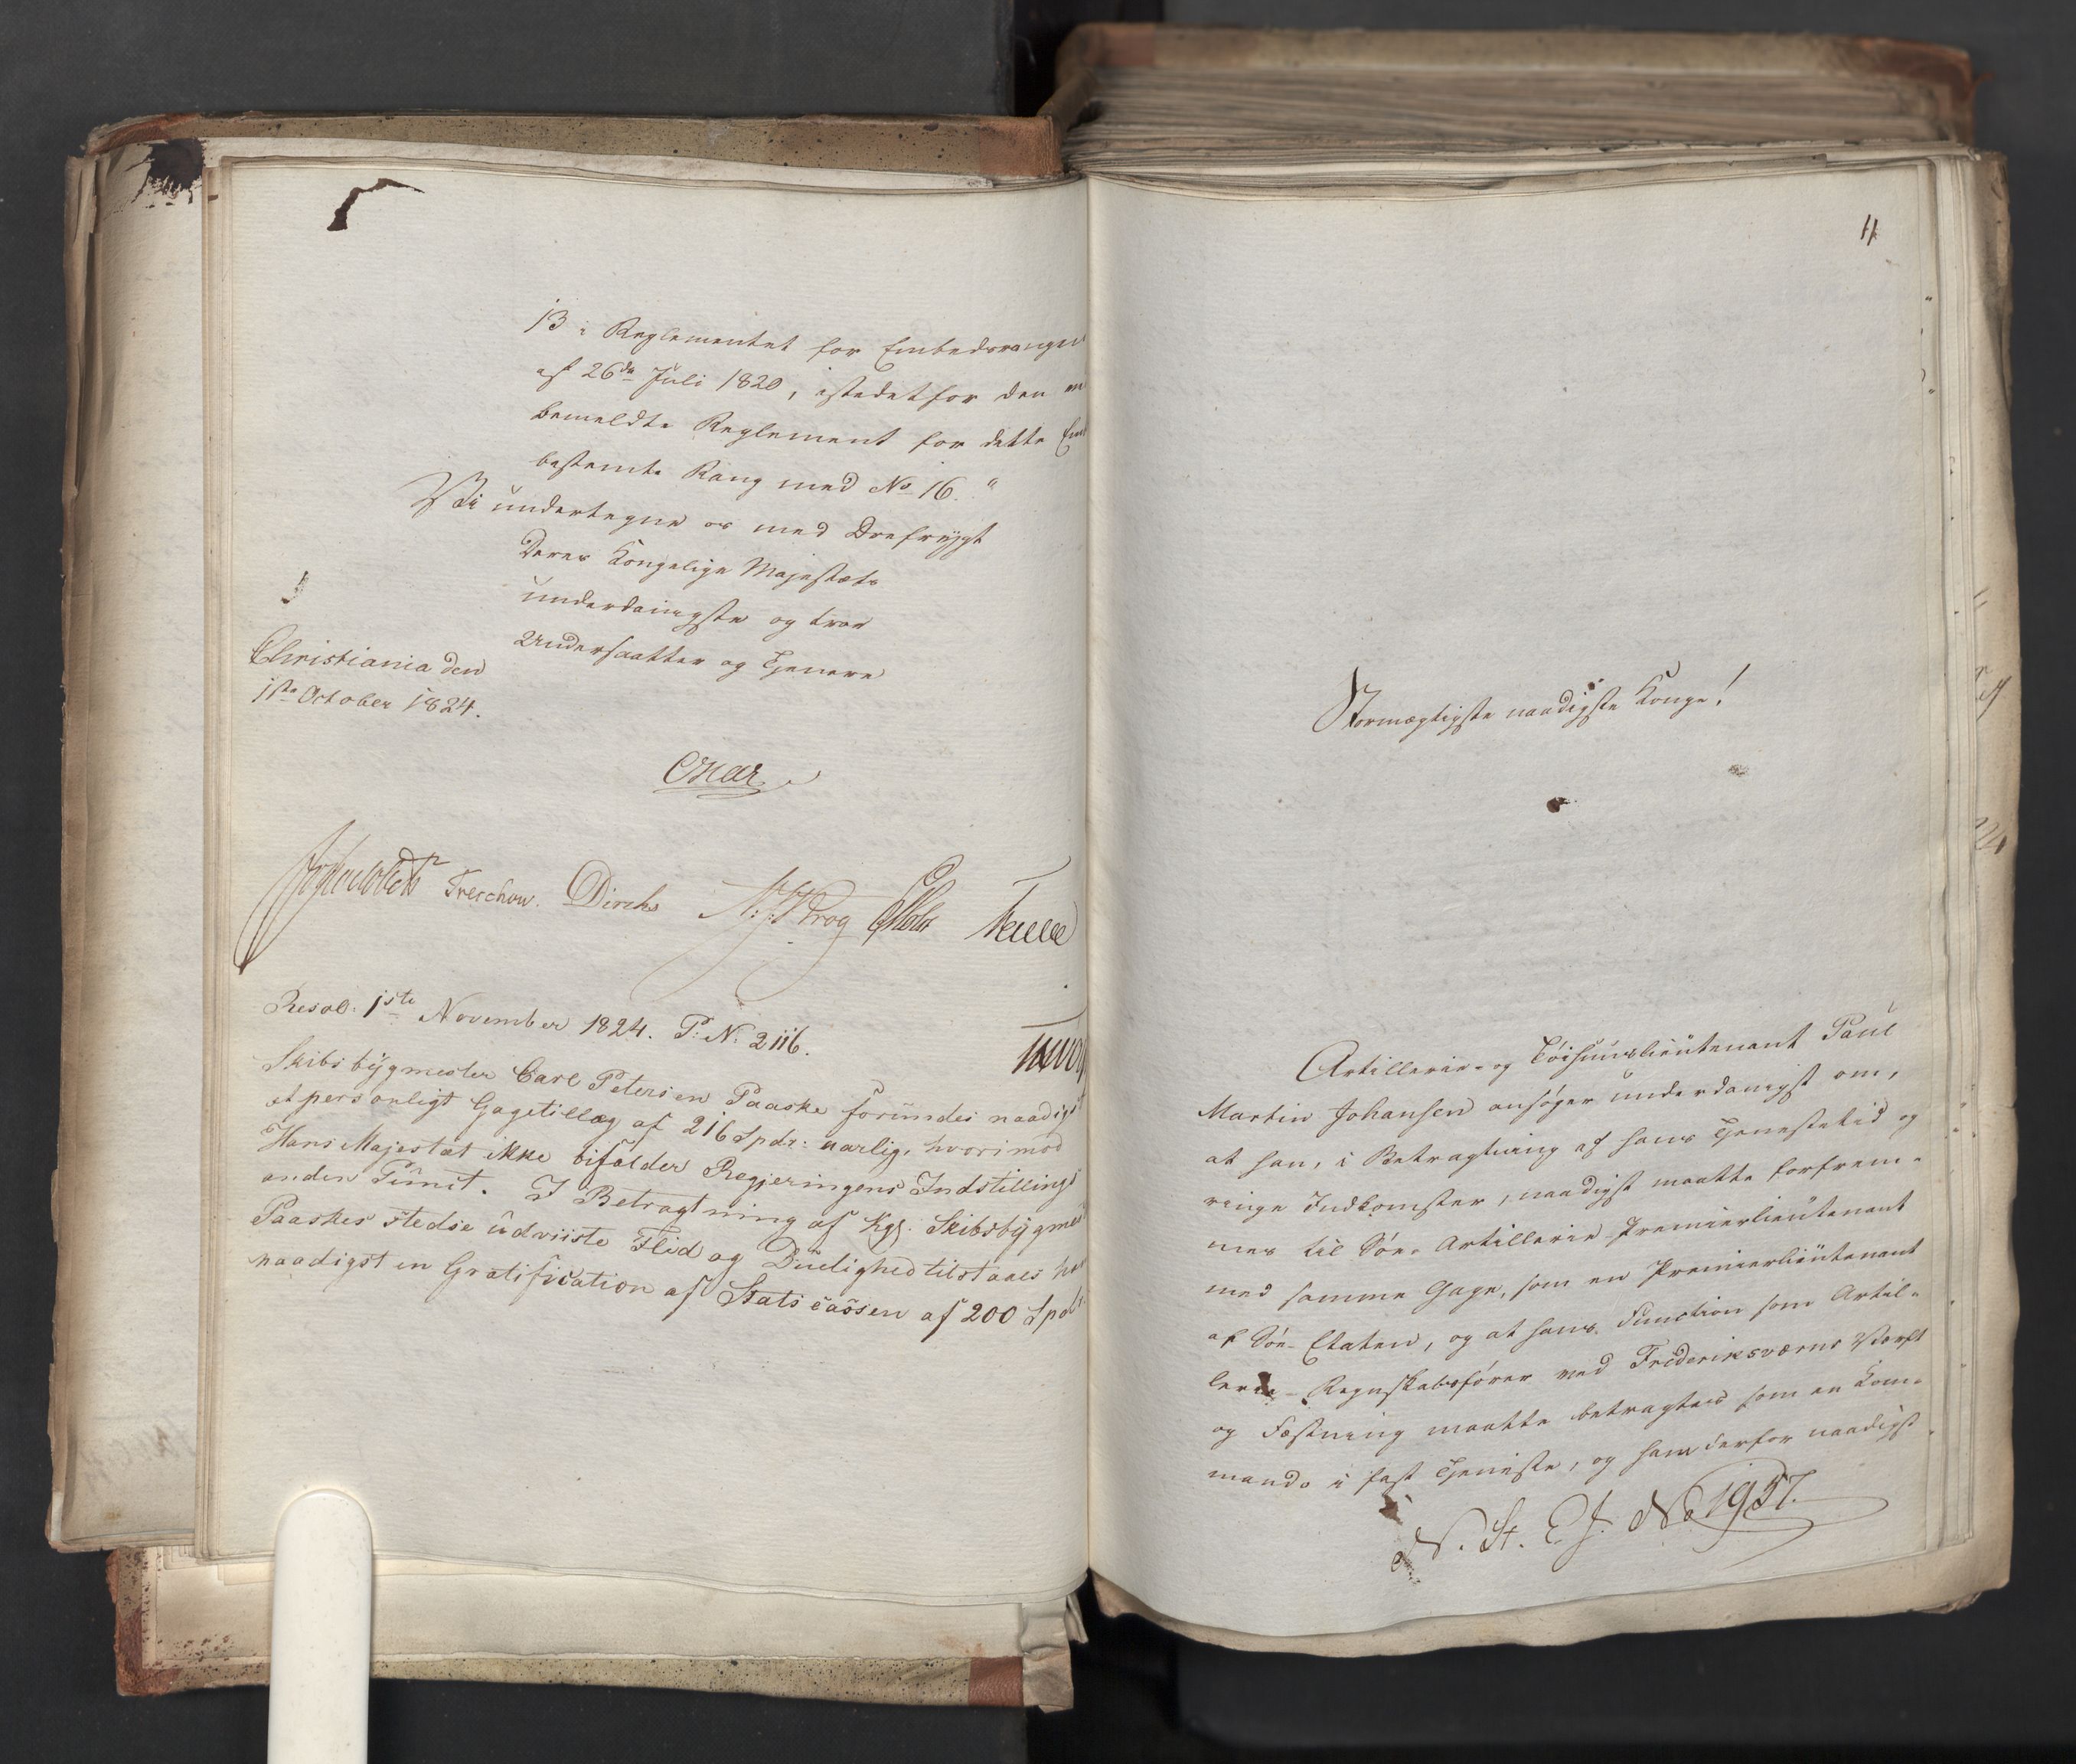 13 i Reglementet for Embedsrangen
af 26de Juli 1820, istedetfor den
bemeldte Reglement for dette
bestemte Rang med No 16."
Vi undertegne os med Ærefrygt
Deres Kongelige Majestæts
underdanigste og troe
Undersaatter og Tjenere
Christiania den
1ste October 1824.
Oscar
Treschow. Diriks Krog
Resol: 1ste November 1824. P: N: 2116.
Skibsbÿgmester Carl Petersen Paaske forundes naadigst
et personligt Gagetillæg af 216 Spdr: aarlig, hvorimod
Hans Majestæt ikke bifalder Regjeringens Indstillings
anden Punct. I Betragtning af Kgl. Skibsbÿgmes
Paaskes stedse udviiste Flid og Duelighed tilstaaes
naadigst en Gratification af Statscassen af 200 Spdr.
11
Stormægtigste naadigste Konge!
Artillerie- og Töihuuslieutenant Paul
Martin Johansen ansøger underdanigst om,
at han, i Betragtning af hans Tjenestetid og
ringe Indkomster, naadigst maatte forfrem-
mes til Söe-Artillerie-Premierlieutenant
med samme Gage, som en Premierlieutenant
af Söe-Etaten, og at hans Function som Artil-
lerie-Regnskabsförer ved Frideriksværns Værft
og Fæstning maatte betragtes som en Kom-
mando i fast Tjeneste, og ham derfor naadigst
N. St. E. J. No 1957.